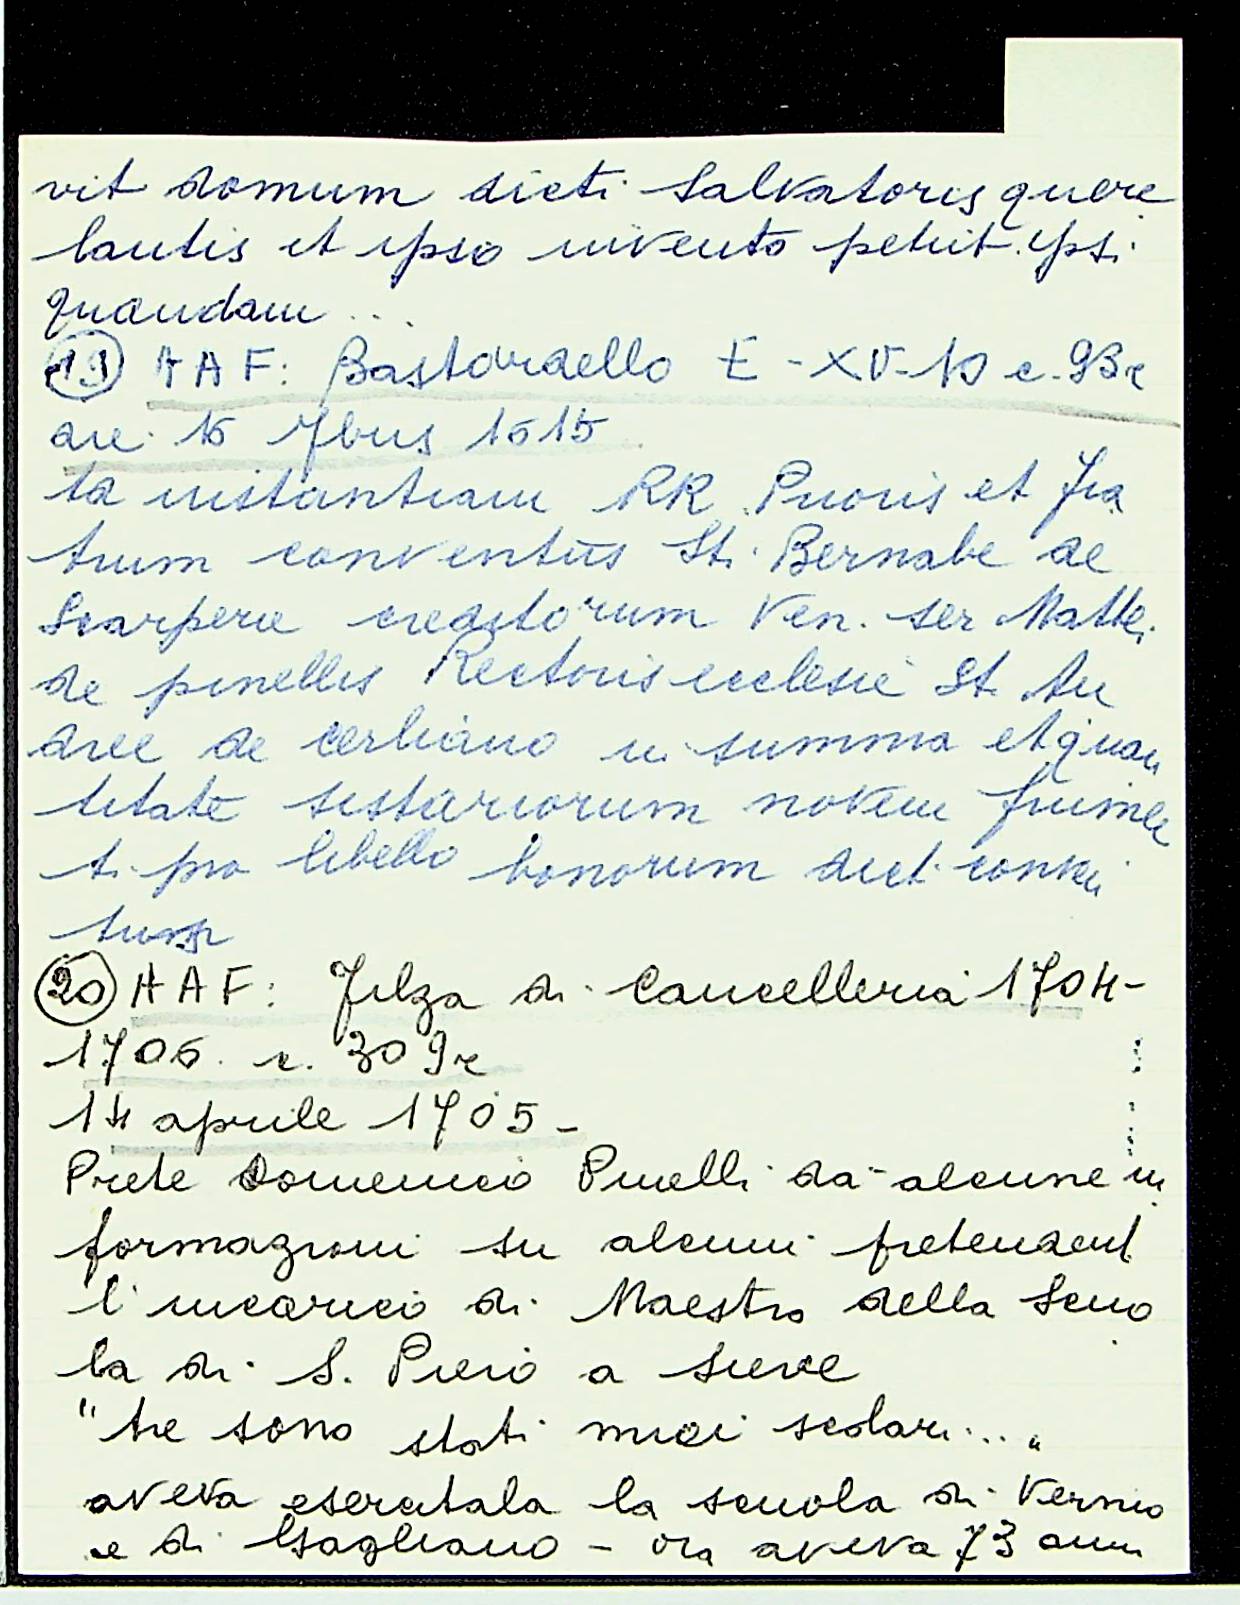 vit domum dicti Salvatoris quere
lantis et ipso invento petiit ipsi
quandam...
19 AAF: Bastardello E-XV-10 c. 93r
die 16 7bris 1615
ta instantiam RR Prioris et fra
trum conventus St. Bernabe de
Scarperie creditorum Ven. ser Matthei
de pinellis Rectoris ecclesie St. An
dree de cerliano in summa et quan
titate sestariorum novem frumen
ti pro libello bonorum dict conven
tus
20 AAF: Filza di Cancelleria 1704-
1706. c. 309r
14 aprile 1705-
Prete Domenico Pinelli da alcune in
formazioni su alcuni pretendenti
l'incarico di Maestro della Scuo
la di S. Piero a Sieve
"tre sono stati miei scolari..."
aveva esercitata la scuola di Vernio
e di Gagliano - ora aveva 73 anni